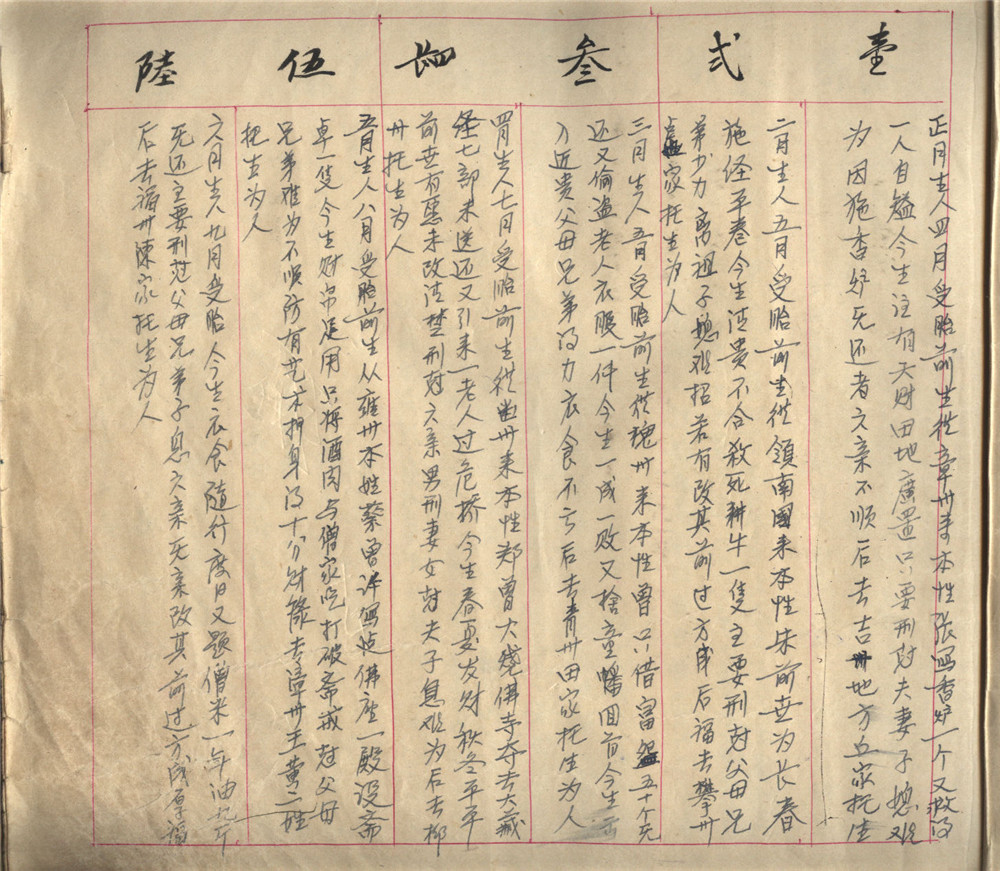 壹
正月生人四月受胎前生從章州来本性張写香炉一个又救得
一人自缢今生注有天财田地廣置只要刑尅夫妻子媳难
为因施香炉无还者六亲不顺后去吉州地方丘家托生
弍
二月生人五月受胎前生從領南國来本性朱前世为长春
施経卷今生清贵不合殺死耕牛一隻主要刑尅父母兄
弟少力离祖子媳难招若有改其前过方成后福去攀州
家托生为人
叁
三月生人五月受胎前生從槐州来本性曾口借富五十个无
还又偷盗老人衣服一件今生一成一败又捨童幡回首今生
入近贵父母兄弟得力衣食不亏后去青州田家托生为人
四月生人七月受胎前生從州来本性郑曾大烧佛寺夺去大藏
经七部未送还又引来一老人过危桥今生春夏发财秋冬平平
前世有愿未改清楚刑尅六亲男刑妻女尅夫子息难为后去柳
州托生为人
伍
五月生人八月受胎前生从雍州本姓蔡曾许写造佛座一殿设斋
卓一隻今生财帛足用只将酒肉与僧家吃打破斋戒尅父母
兄弟难为不顺防有艺术押身得十分财禄去漳州王黄二姓
托生为人
陸
六月生人九月受胎今生衣食随行度日又题僧米一年油九斤
无还主要刑尅父母兄弟子息六亲无亲改其前过方成厚福
后去福州陳家托生为人